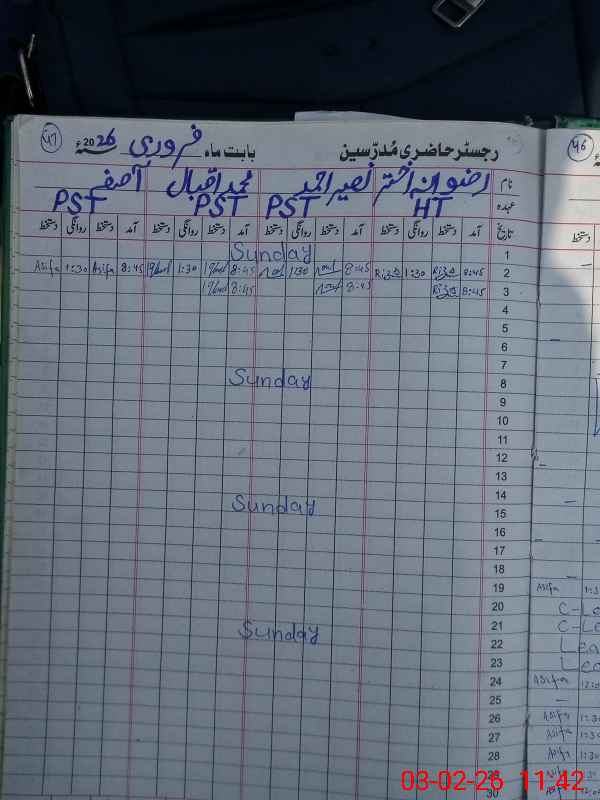 47 رجسٹر حاضری مُدرّسین بابت ماہ فروری سنہ 2026ء
نام رضوانہ اختر نصیر احمد محمد اقبال آصفہ
عہدہ HT PST PST PST
تاریخ آمد دستخط روانگی دستخط آمد دستخط روانگی دستخط آمد دستخط روانگی دستخط آمد دستخط روانگی دستخط
1 Sunday
2 8:45 1:30 8:45 1:30 8:45 Iqbal 1:30 Iqbal 8:45 Asifa 1:30 Asifa
3 8:45 8:45 8:45 Iqbal
4
5
6
7
8 Sunday
9
10
11
12
13
14
15 Sunday
16
17
18
19
20
21
22 Sunday
23
24
25
26
27
28
29
30
46
دستخط
Asifa
C-Le
C-Le
Lea
Lea
Asifa 12:0
Asifa 1:30
Asifa 1:30
Asifa 1:30
03-02-26 11:42